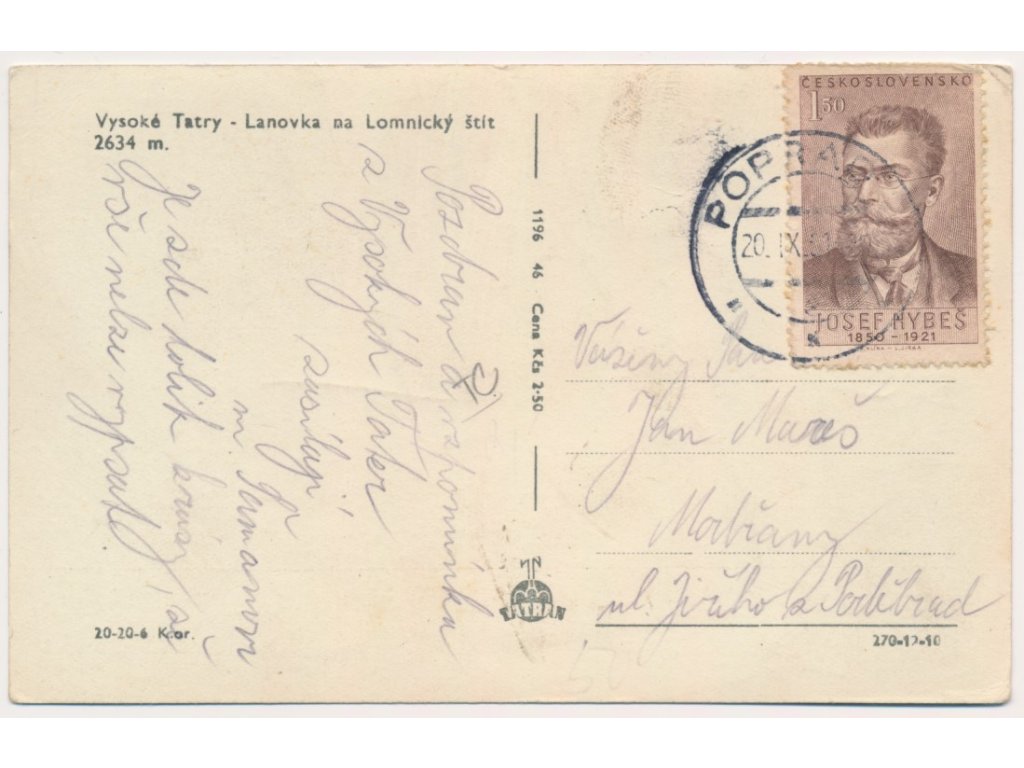 Vysoké Tatry - Lanovka na Lomnický štít
2634 m.
Pozdrav a vzpomínku
z Vysokých Tater
zasílají
m.
Je zde tolik krásy, že
vše nelze vypsat
1196 46 Cena Kčs 2·50
TATRAN
20-20-6 Kor.
ČESKOSLOVENSKO
1,50
JOSEF HYBEŠ
1850 - 1921
POPRAD
20. IX.
Vážený Pan
Jan Mareš
Modřany
ul. Jiřího z Poděbrad
270-12-10